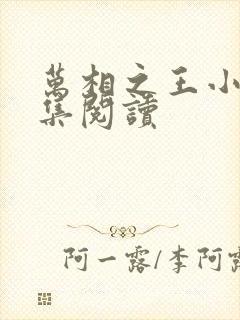 萬相之王小
集閱讀
阿一露/李阿露